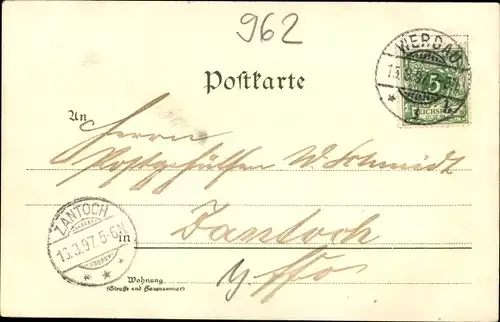 962
Postkarte
WERDAU
13.3.97
5
REICHSPOST
An
Herrn
Postgehülfen W. Schmidt
ZANTOCH
13.3.97. 5-6N
in
Zantoch
Wohnung
(Straße und Hausnummer)